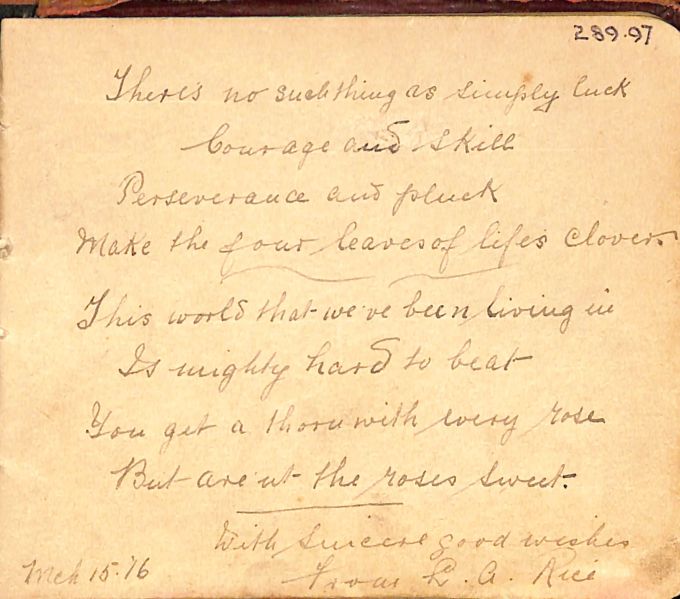 289.97
There's no such thing as simply luck
Courage and skill
Perseverance and pluck
Make the four leaves of life's clovers
This world that we've been living in
Is mighty hard to beat
You get a thorn with every rose
But are'nt the roses sweet.
With sincere good wishes
Mch 15.'16 From L. A. Rice